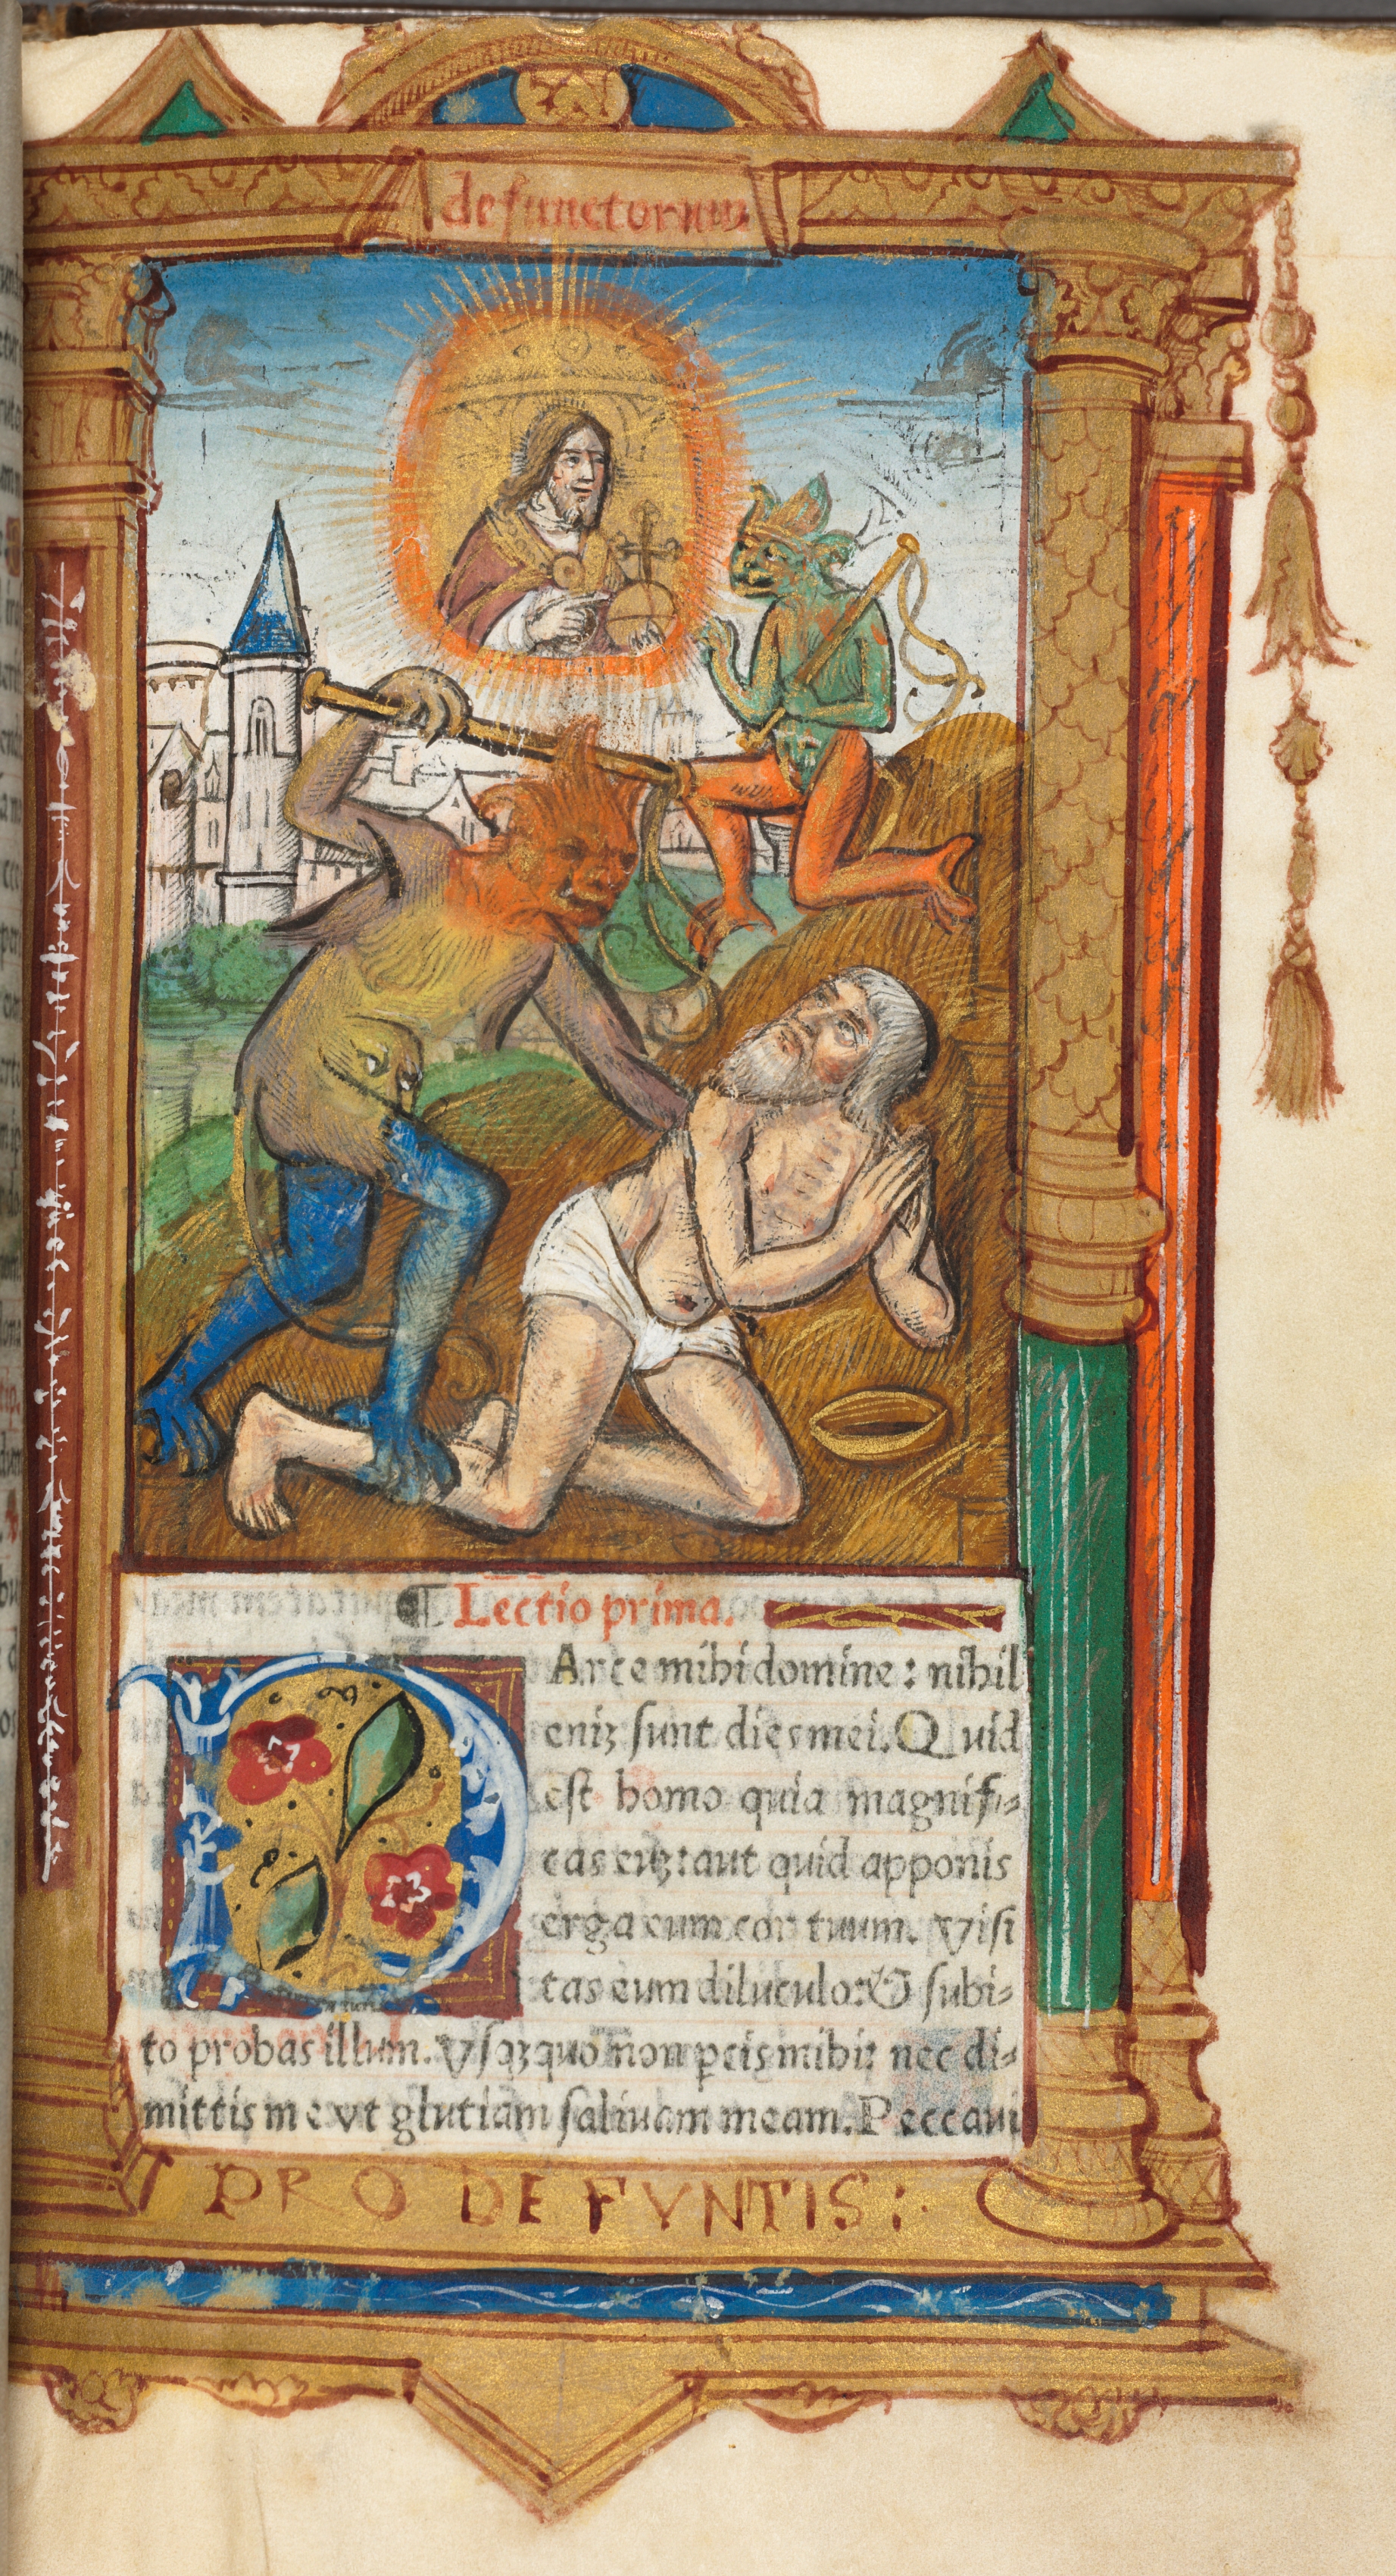 defunctorum
¶ Lectio prima.
PArce mihi domine : nihil
eniʒ sunt dies mei. Quid
est homo quia magnifi-
cas euʒ: aut quid apponis
erga eum cor tuum. Visi
tas eum diluculo: & subi-
to probas illum. Vsqʒquo non ꝑcis mihi: nec di-
mittis me vt glutiam saliuam meam. Peccaui
PRO DEFVNTIS :